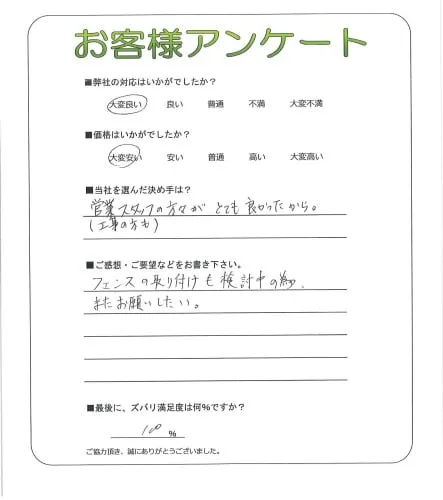 お客様アンケート
■弊社の対応はいかがでしたか？
大変良い 良い 普通 不満 大変不満
■価格はいかがでしたか？
大変安い 安い 普通 高い 大変高い
■当社を選んだ決め手は？
営業スタッフの方々が とても良かったから。
(工事の方も)
■ご感想・ご要望などをお書き下さい。
フェンスの取り付けも検討中の為、
またお願いしたい。
■最後に、ズバリ満足度は何%ですか？
100 %
ご協力頂き、誠にありがとうございました。